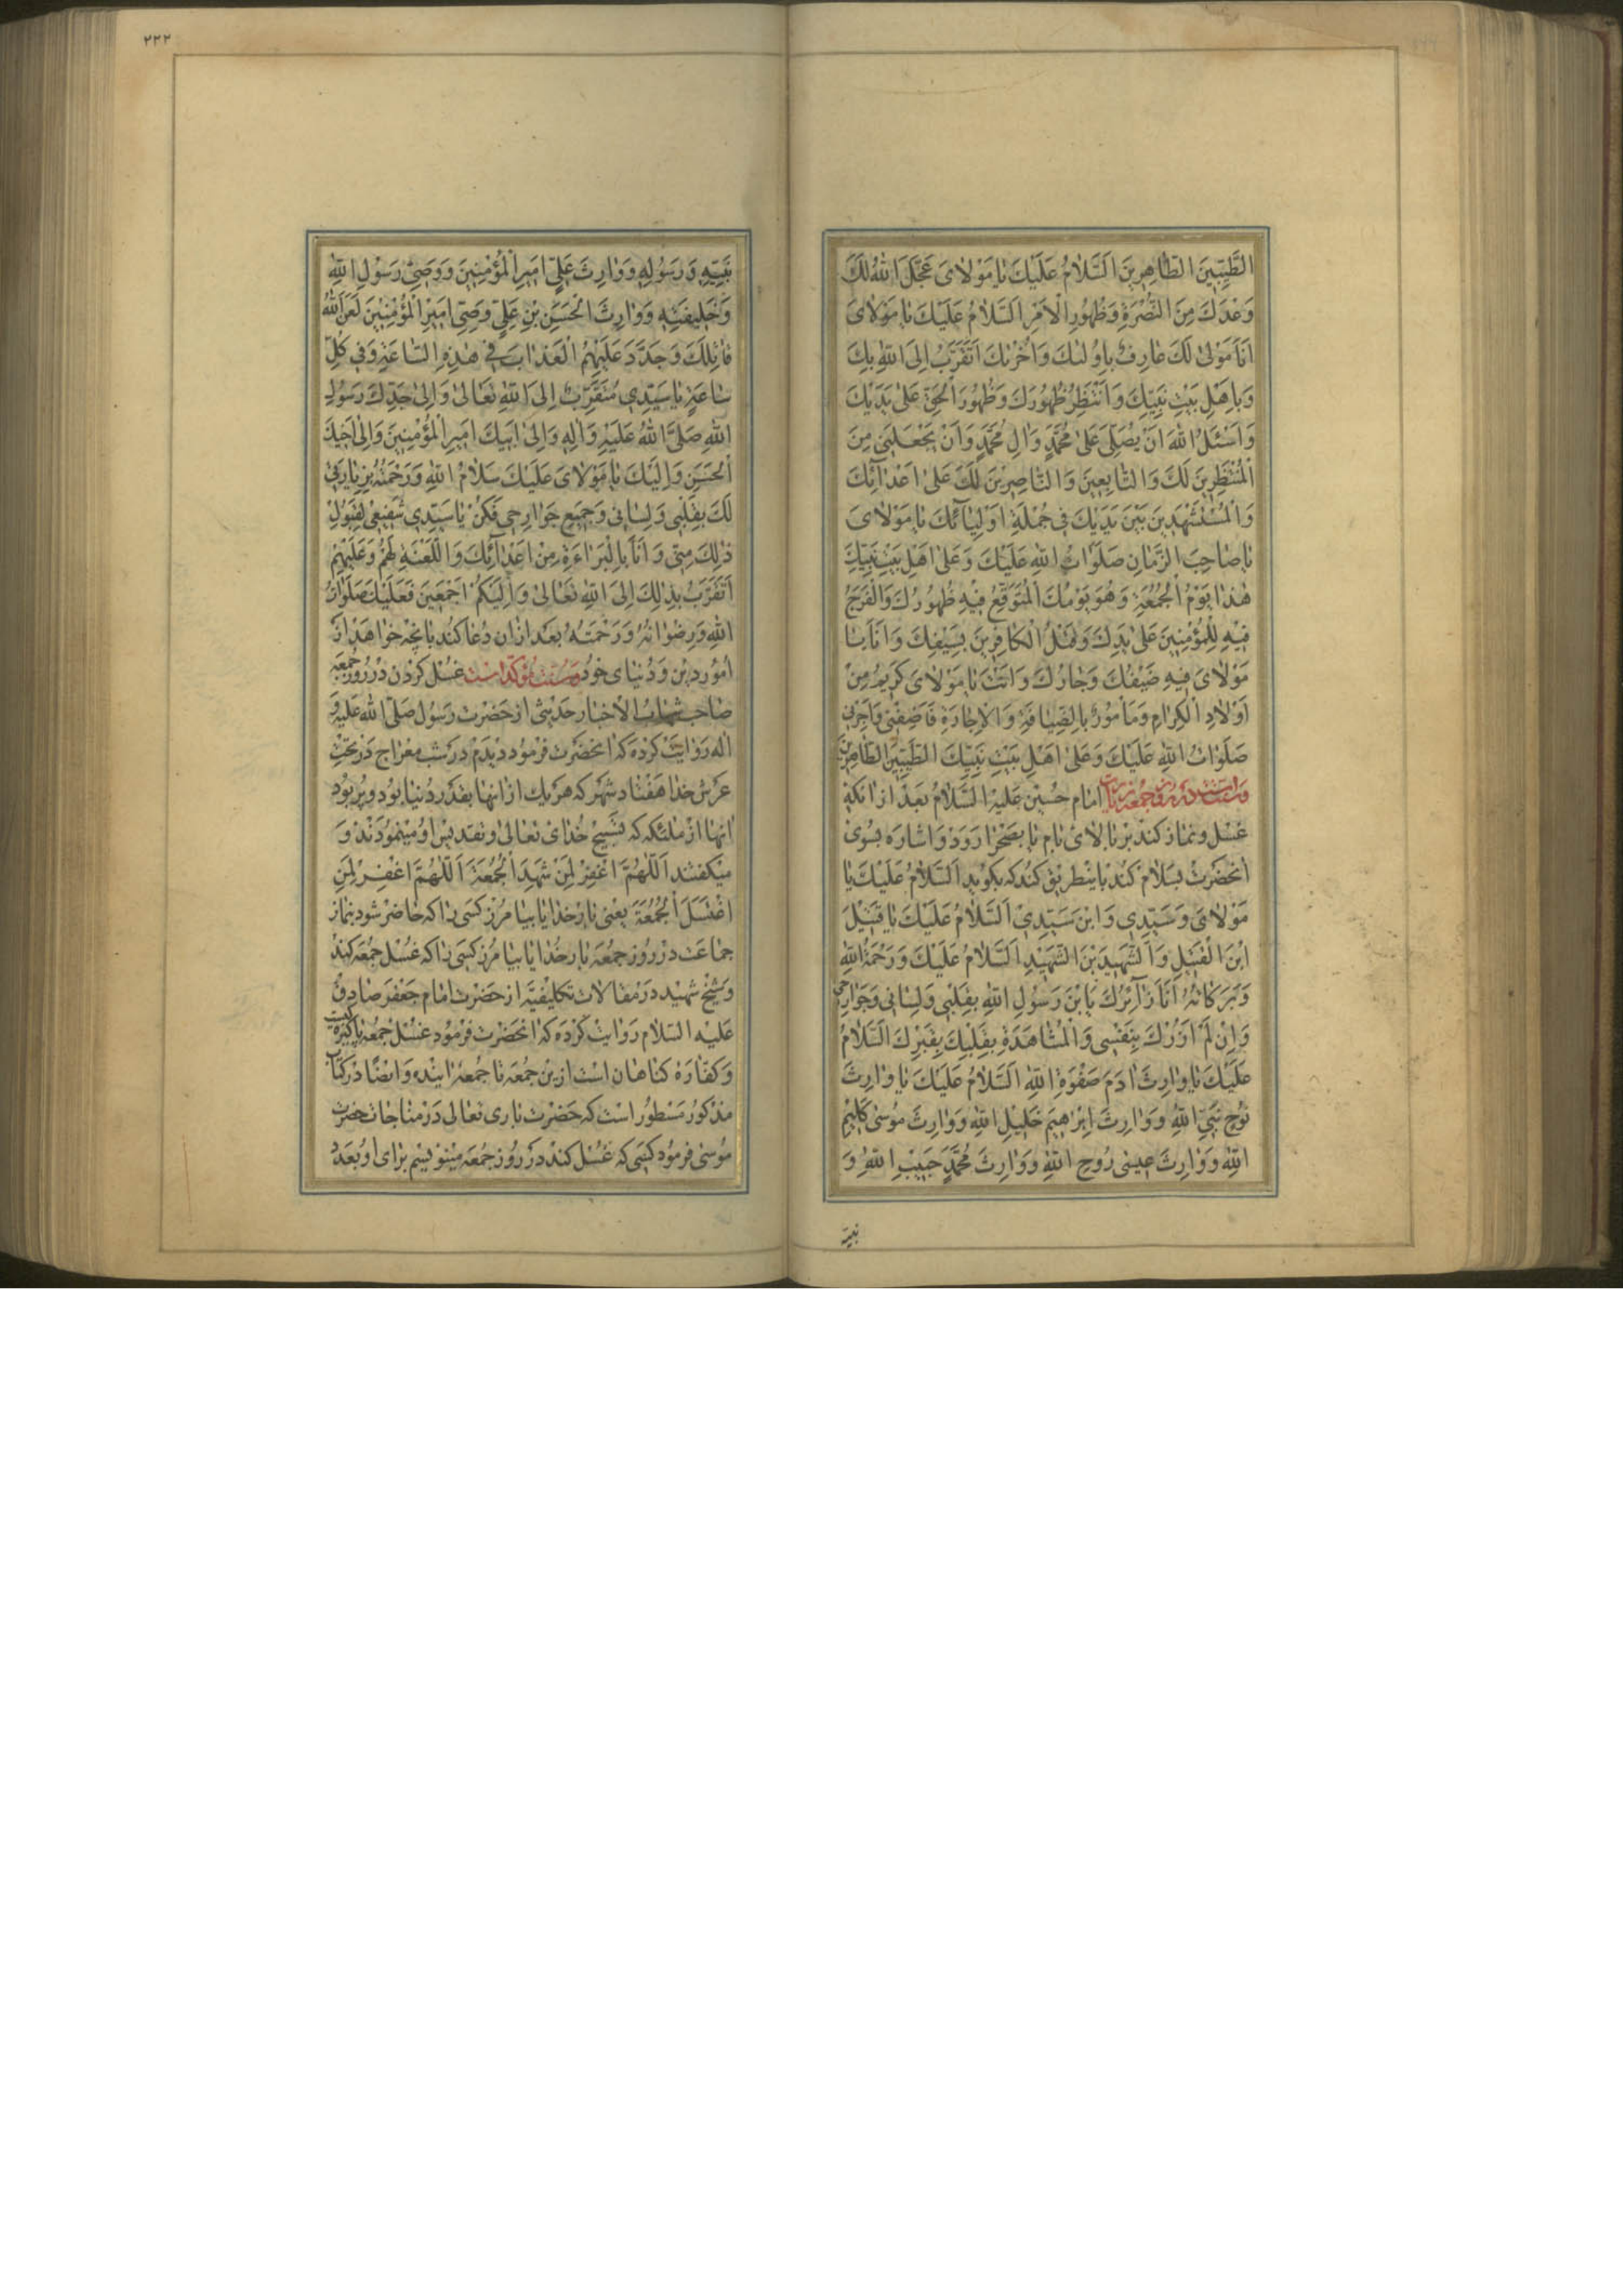 الطَّيِّبِينَ الطَّاهِرِينَ اَلسَّلامُ عَلَيْكَ يا مَوْلايَ عَجَّلَ اللهُ لَكَ
وَعَدَكَ مِنَ النُّصْرَةِ وَظُهُورِ الْاَمْرِ اَلسَّلامُ عَلَيْكَ يا مَوْلايَ
اَنَا مَوْلىً لَكَ عارِفٌ بِاُولٰيكَ وَاُخْرٰيكَ اَتَقَرَّبُ اِلَى اللهِ بِكَ
وَبِاَهْلِ بَيْتِ نَبِيِّكَ وَاَنْتَظِرُ ظُهُورَكَ وَظُهُورَ الْحَقِّ عَلىٰ يَدَيْكَ
وَاَسْئَلُ اللهَ اَنْ يُصَلِّيَ عَلىٰ مُحَمَّدٍ وَالِ مُحَمَّدٍ وَاَنْ يَجْعَلَنِي مِنَ
الْمُنْتَظِرِينَ لَكَ وَالتّابِعِينَ وَالنّاصِرِينَ لَكَ عَلىٰ اَعْدآئِكَ
وَالْمُسْتَشْهَدِينَ بَيْنَ يَدَيْكَ فِي جُمْلَةِ اَوْلِيآئِكَ يا مَوْلايَ
يا صاحِبَ الزَّمانِ صَلَواتُ اللهِ عَلَيْكَ وَعَلىٰ اَهْلِ بَيْتِ نَبِيِّكَ
هٰذا يَوْمُ الْجُمُعَةِ وَهُوَ يَوْمُكَ الْمُتَوَقَّعُ فِيهِ ظُهُورُكَ وَالْفَرَجُ
فِيهِ لِلْمُؤْمِنِينَ عَلىٰ يَدِكَ وَقَتْلُ الْكافِرِينَ بِسَيْفِكَ وَاَنَا يا
مَوْلايَ فِيهِ ضَيْفُكَ وَجارُكَ وَاَنْتَ يا مَوْلايَ كَرِيمٌ مِنْ
اَوْلادِ الْكِرامِ وَمَأْمُورٌ بِالضِّيافَةِ وَالْاِجارَةِ فَاَضِفْنِي وَاَجِرْنِي
صَلَواتُ اللهِ عَلَيْكَ وَعَلىٰ اَهْلِ بَيْتِ نَبِيِّكَ الطَّيِّبِينَ الطّاهِرِينَ
وسنتست در روز جمعه زيارت امام حُسَيْن عَلَيْهِ السَّلامُ بَعْدَ از انكه
غسل و نماز كند بر بالاى بام يا بصحرا رود و اشاره بسوى
انحضرت بسلام كند باينطريق كند كه بكويد اَلسَّلامُ عَلَيْكَ يا
مَوْلايَ وَسَيِّدِي وَابْنَ سَيِّدِي اَلسَّلامُ عَلَيْكَ يا قَتِيلَ
ابْنَ الْقَتِيلِ وَالشَّهِيدَ بْنَ الشَّهِيدِ اَلسَّلامُ عَلَيْكَ وَرَحْمَةُ اللهِ
وَبَرَكاتُهُ اَنَا زآئِرُكَ يَا بْنَ رَسُولِ اللهِ بِقَلْبِي وَلِسانِي وَجَوارِحِي
وَاِنْ لَمْ اَزُرْكَ بِنَفْسِي وَالْمُشاهَدَةِ بِقَلْبِكَ بِقَبْرِكَ اَلسَّلامُ
عَلَيْكَ يا وارِثَ ادَمَ صَفْوَةِ اللهِ اَلسَّلامُ عَلَيْكَ يا وارِثَ
نُوحٍ نَبِيِّ اللهِ وَوارِثَ اِبْرٰهِيمَ خَلِيلِ اللهِ وَوارِثَ مُوسىٰ كَلِيمِ
اللهِ وَوارِثَ عِيسىٰ رُوحِ اللهِ وَوارِثَ مُحَمَّدٍ حَبِيبِ اللهِ وَ
نبيّه
٢٢٢
نَبِيِّهِ وَرَسُولِهِ وَوارِثَ عَلِيٍّ اَمِيرِ الْمُؤْمِنِينَ وَوَصِيِّ رَسُولِ اللهِ
وَخَلِيفَتِهِ وَوارِثَ الْحَسَنِ بْنِ عَلِيٍّ وَصِيِّ اَمِيرِ الْمُؤْمِنِينَ لَعَنَ اللهُ
قاتِلَكَ وَجَدَّدَ عَلَيْهِمُ الْعَذابَ فِي هٰذِهِ السّاعَةِ وَفِي كُلِّ
ساعَةٍ يا سَيِّدِي مُتَقَرِّبٌ اِلَى اللهِ تَعالىٰ وَاِلىٰ جَدِّكَ رَسُولِ
اللهِ صَلَّى اللهُ عَلَيْهِ وَالِهِ وَاِلىٰ اَبِيكَ اَمِيرِ الْمُؤْمِنِينَ وَاِلىٰ اَخِيكَ
الْحَسَنِ وَاِلَيْكَ يا مَوْلايَ عَلَيْكَ سَلامُ اللهِ وَرَحْمَتُهُ بِزِيارَتِي
لَكَ بِقَلْبِي وَلِسانِي وَجَمِيعِ جَوارِحِي فَكُنْ يا سَيِّدِي شَفِيعِي لِقَبُولِ
ذٰلِكَ مِنِّي وَاَنَا بِالْبَراءَةِ مِنْ اَعْدآئِكَ وَاللَّعْنَةِ لَهُمْ وَعَلَيْهِمْ
اَتَقَرَّبُ بِذٰلِكَ اِلَى اللهِ تَعالىٰ وَاِلَيْكُمْ اَجْمَعِينَ فَعَلَيْكَ صَلَواتُ
اللهِ وَرِضْوانُهُ وَرَحْمَتُهُ بعد ازان دعا كند بانچه خواهد از
امور دين و دنياى خود وسنت مؤكد است غسل كردن در روز جمعه
صاحب شهاب الاخبار حديثى از حضرت رسول صلى الله عليه و
اله روايت كرده كه انحضرت فرمود ديدم در شب معراج در تحت
عرش خدا هفتاد شهر كه هر يك از انها بقدر دنيا بود و پر بود
انها از ملئكه كه تسبيح خداى تعالى و تقديس او مينمودند و
ميكفتند اَللّٰهُمَّ اغْفِرْ لِمَنْ شَهِدَ الْجُمُعَةَ اَللّٰهُمَّ اغْفِرْ لِمَنِ
اغْتَسَلَ الْجُمُعَةَ يعنى بار خدايا بيامرز كسى را كه حاضر شود بنماز
جماعت در روز جمعه بار خدايا بيامرز كسى را كه غسل جمعه كند
و شيخ شهيد در مقالات تكليفيّه از حضرت امام جعفر صادق
عليه السلام روايت كرده كه انحضرت فرمود غسل جمعه پاكيزه كيست
و كفّاره كناهان است ازين جمعه تا جمعه اينده و ايضًا در كتاب
مذكور مسطور است كه حضرت بارى تعالى در مناجات حضرت
موسى فرمود كسى كه غسل كند در روز جمعه مينويسم براى او بعدد